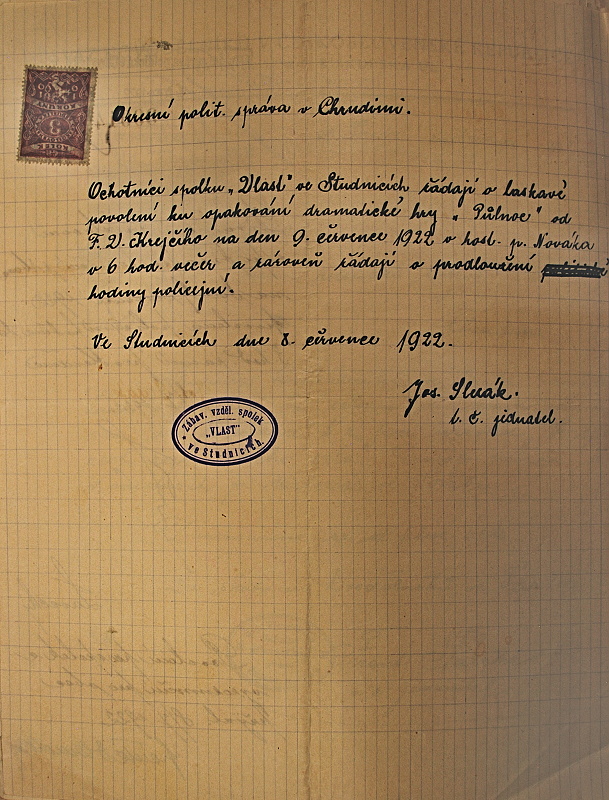 Okresní polit. správa v Chrudimi.
Ochotníci spolku „Vlast" ve Studnicích žádají o laskavé
povolení ku opakování dramatické hry „Půlnoc" od
F. V. Krejčího na den 9. července 1922 v host. p. Nováka
v 6 hod. večer a zároveň žádají o prodloužení
hodiny policejní.
Ve Studnicích dne 8. července 1922.
Jos. Slezák.
t. č. jednatel.
Zábav. vzděl. spolek
„VLAST"
ve Studnicích.
3
KOLEK